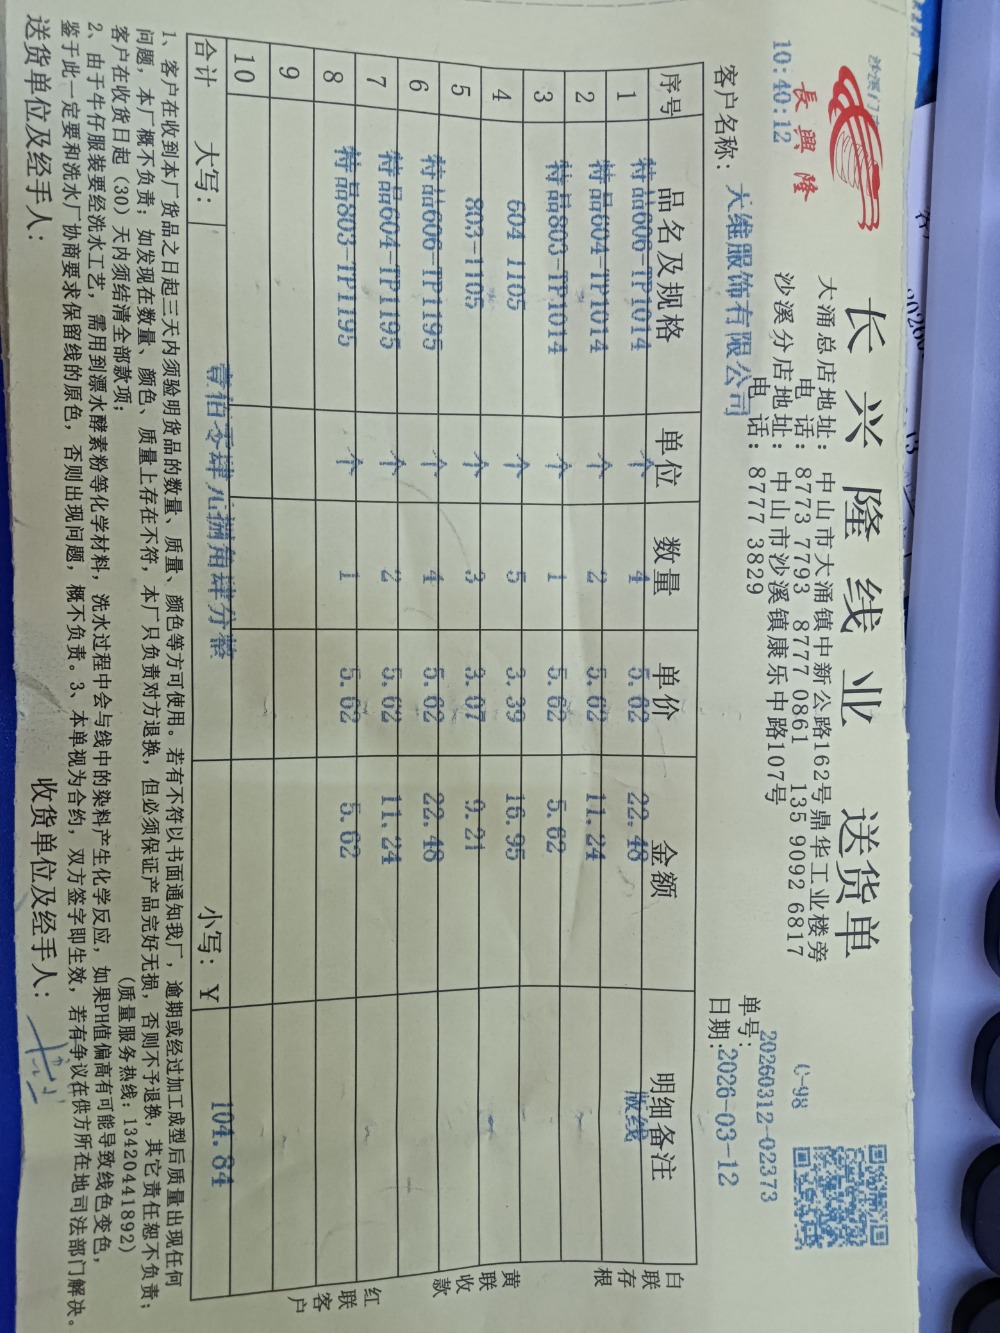 沙溪门
10:40:12
長興隆
长兴隆线业 送货单
大涌总店地址：中山市大涌镇中新公路162号鼎华工业楼旁
电 话：8773 7793 8777 0861 135 9092 6817
沙溪分店地址：中山市沙溪镇康乐中路107号
电 话：8777 3829
C-98
单号：20260312-02373
日期：2026-03-12
客户名称：大维服饰有限公司
序号 品名及规格 单位 数量 单价 金额 明细备注
1 特品606-TP1014 个 4 5.62 22.48 版线
2 特品604-TP1014 个 2 5.62 11.24
3 特品803-TP1014 个 1 5.62 5.62
4 604 1105 个 5 3.39 16.95
5 803-1105 个 3 3.07 9.21
6 特品606-TP1195 个 4 5.62 22.48
7 特品604-TP1195 个 2 5.62 11.24
8 特品803-TP1195 个 1 5.62 5.62
9
10
合计 大写：壹佰零肆元捌角肆分整 小写：¥ 104.84
白联存根
黄联收款
红联客户
1、客户在收到本厂货品之日起三天内须验明货品的数量、质量、颜色等方可使用。若有不符以书面通知我厂，逾期或经过加工成型后质量出现任何
问题，本厂概不负责；如发现在数量、颜色、质量上存在不符，本厂只负责对方退换，但必须保证产品完好无损，否则不予退换，其它责任恕不负责；
客户在收货日起（30）天内须结清全部款项； (质量服务热线：13420441892)
2、由于牛仔服装要经洗水工艺，需用到漂水酵素粉等化学材料，洗水过程中会与线中的染料产生化学反应，如果PH值偏高有可能导致线色变色，
鉴于此一定要和洗水厂协商要求保留线的原色，否则出现问题，概不负责。3、本单视为合约，双方签字即生效，若有争议在供方所在地司法部门解决。
送货单位及经手人： 收货单位及经手人：